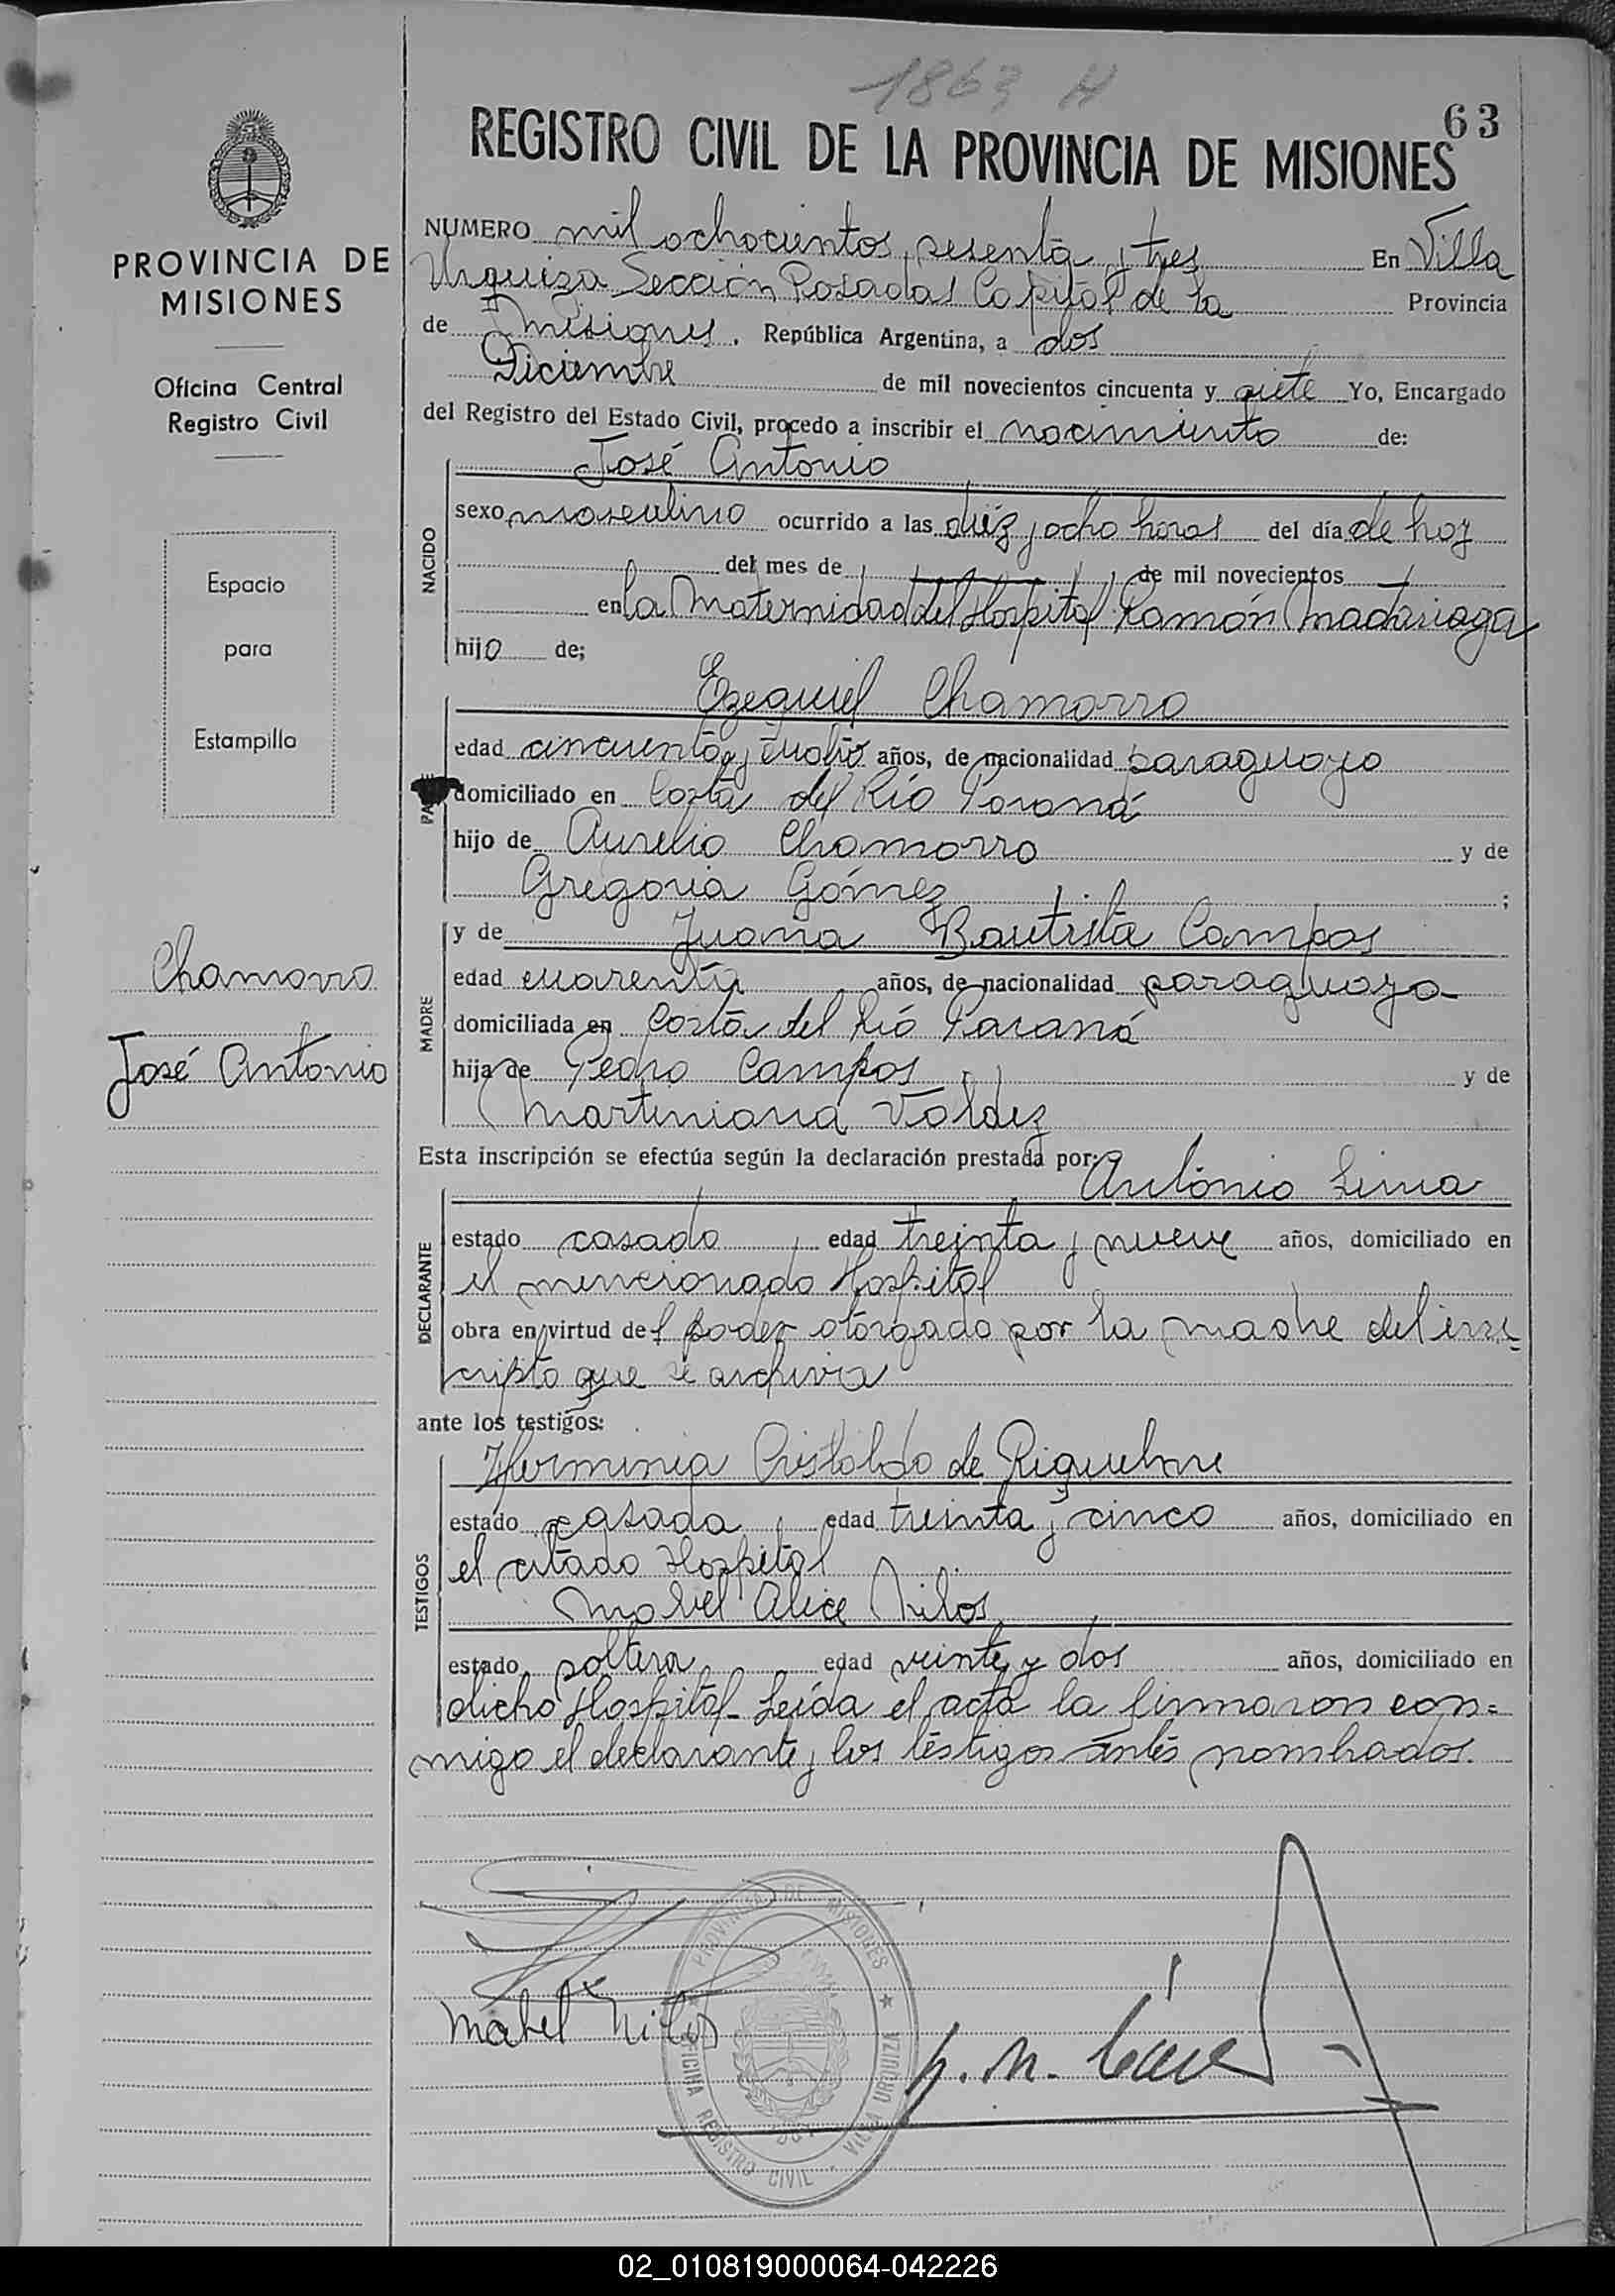 1863 H
63
REGISTRO CIVIL DE LA PROVINCIA DE MISIONES
PROVINCIA DE
MISIONES
Oficina Central
Registro Civil
Espacio
para
Estampilla
Chamorro
José Antonio
NUMERO mil ochocientos sesenta y tres En Villa
Urquiza Sección Posadas Capital de la Provincia
de Misiones. República Argentina, a dos
Diciembre de mil novecientos cincuenta y siete Yo, Encargado
del Registro del Estado Civil, procedo a inscribir el nacimiento de:
NACIDO
José Antonio
sexo masculino ocurrido a las diez y ocho horas del día de hoy
del mes de de mil novecientos
en la Maternidad del Hospital Ramón Madariaga
hijo de;
Ezequiel Chamorro
edad cincuenta y cuatro años, de nacionalidad paraguayo
domiciliado en Costa del Río Paraná
hijo de Aurelio Chamorro y de
Gregoria Gómez ;
MADRE
y de Juana Bautista Campos
edad cuarenta años, de nacionalidad paraguaya
domiciliada en Costa del Río Paraná
hija de Pedro Campos y de
Martiniana Valdez
Esta inscripción se efectúa según la declaración prestada por: Antonio Lima
DECLARANTE
estado casado edad treinta y nueve años, domiciliado en
el mencionado Hospital
obra en virtud del poder otorgado por la madre del ins-
cripto que se archiva
ante los testigos:
TESTIGOS
Herminia Cristaldo de Riquelme
estado casada edad treinta y cinco años, domiciliado en
el citado Hospital
Mabel Alice Milos
estado soltera edad veinte y dos años, domiciliado en
dicho Hospital- Leída el acta la firmaron con=
migo el declarante y los testigos antes nombrados.
Mabel Milos
PROVINCIA DE MISIONES
OFICINA REGISTRO CIVIL - VILLA URQUIZA
02_010819000064-042226